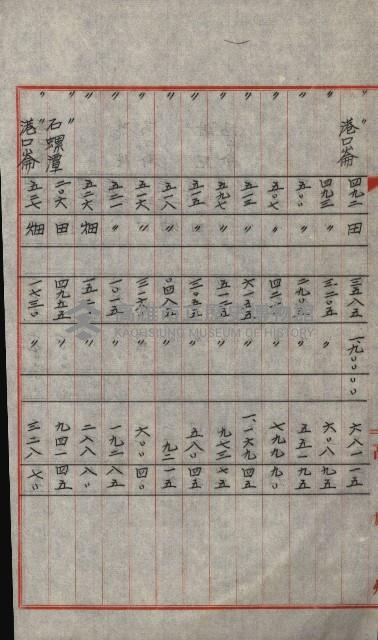 〃 港口崙 四九二 田 三五八五 一九〇〇〇〇 六八一 一五
〃 四九三 〃 三二〇五 〃 六〇八 九五
〃 五〇〇 〃 二九〇五 〃 五五一 九五
〃 五〇七 〃 四二一〇 〃 七九九 九〇
〃 五一三 〃 六一五五 〃 一、一六九 四五
〃 五九七 〃 五一二五 〃 九七三 七五
〃 五一五 〃 三〇五五 〃 五八〇 四五
〃 五一八 〃 〇四八五 〃 九二 一五
〃 五二六 〃 三一六〇 〃 六〇〇 四〇
〃 五二一 〃 一〇一五 〃 一九二 八五
〃 五二六 畑 一五二〇 〃 二八八 八〇
〃 石螺潭 二〇六 田 四九五五 〃 九四一 四五
〃 港口崙 五二七 畑 一七三〇 〃 三二八 七〇
高雄市立歷史博物館
KAOHSIUNG MUSEUM OF HISTORY